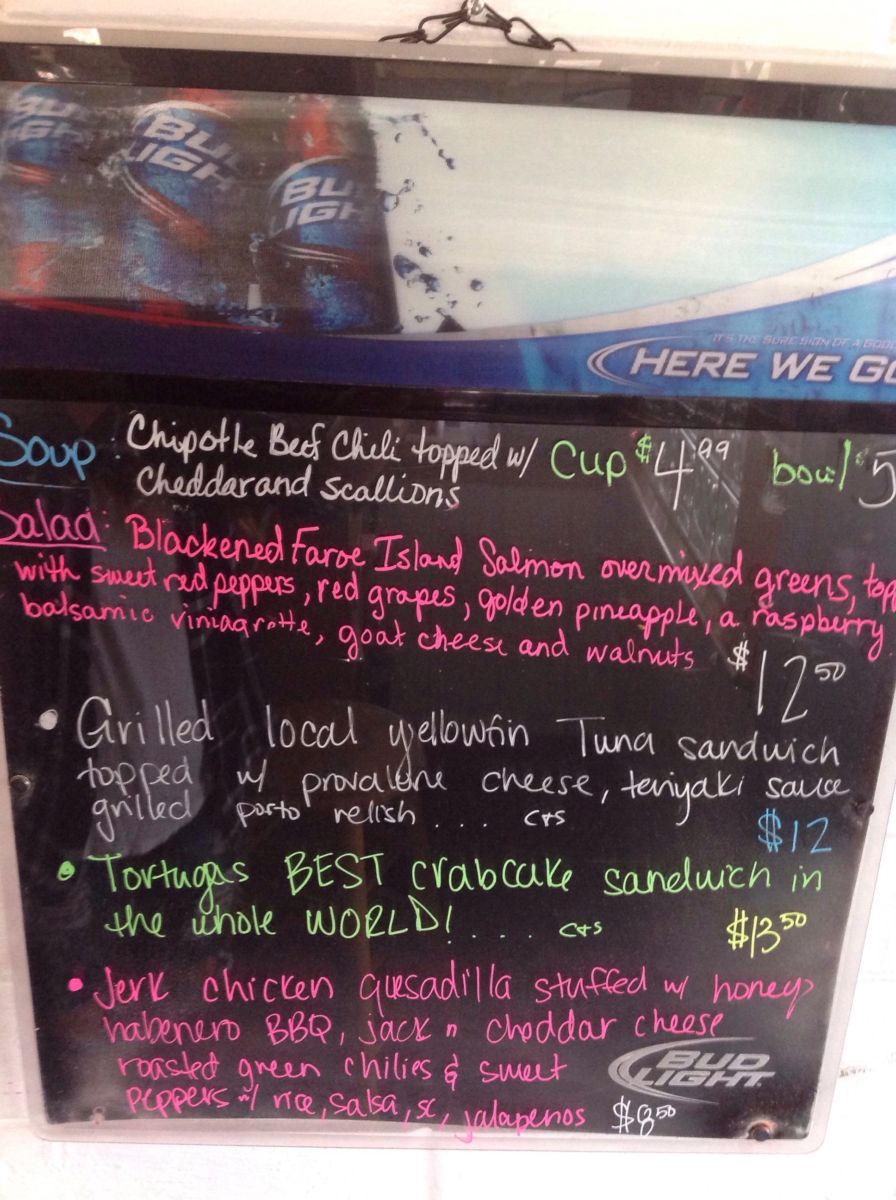 BUD LIGHT
BUD LIGHT
BUD LIGHT
IT'S THE SURE SIGN OF A GOOD
HERE WE GO
Soup: Chipotle Beef Chili topped w/ Cup $4.99 bowl $5
Cheddar and scallions
Salad: Blackened Faroe Island Salmon over mixed greens, top
with sweet red peppers, red grapes, golden pineapple, a raspberry
balsamic viniagrette, goat cheese and walnuts $12.50
• Grilled local yellowfin Tuna sandwich
topped w/ provalone cheese, teriyaki sauce
grilled porto relish... c+s
$12
• Tortugas BEST crabcake sandwich in
the whole WORLD!.... c+s $13.50
• Jerk chicken quesadilla stuffed w/ honey
habenero BBQ, jack n cheddar cheese
roasted green chilies & sweet
peppers w/ rice, salsa, sc, jalapenos $8.50
BUD LIGHT